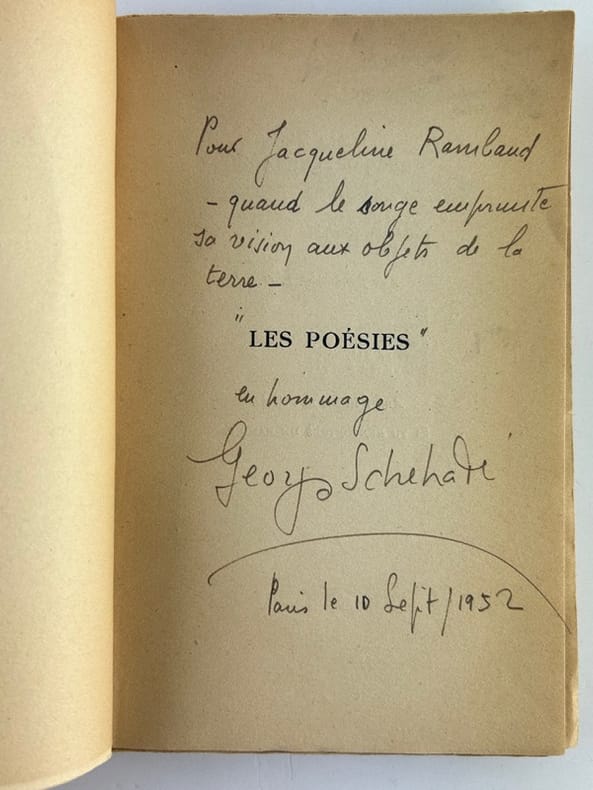 Pour Jacqueline Rambaud
- quand le songe emprunte
sa vision aux objets de la
terre -
"LES POÉSIES"
en hommage
Georges Schehadé
Paris le 10 Sept/1952